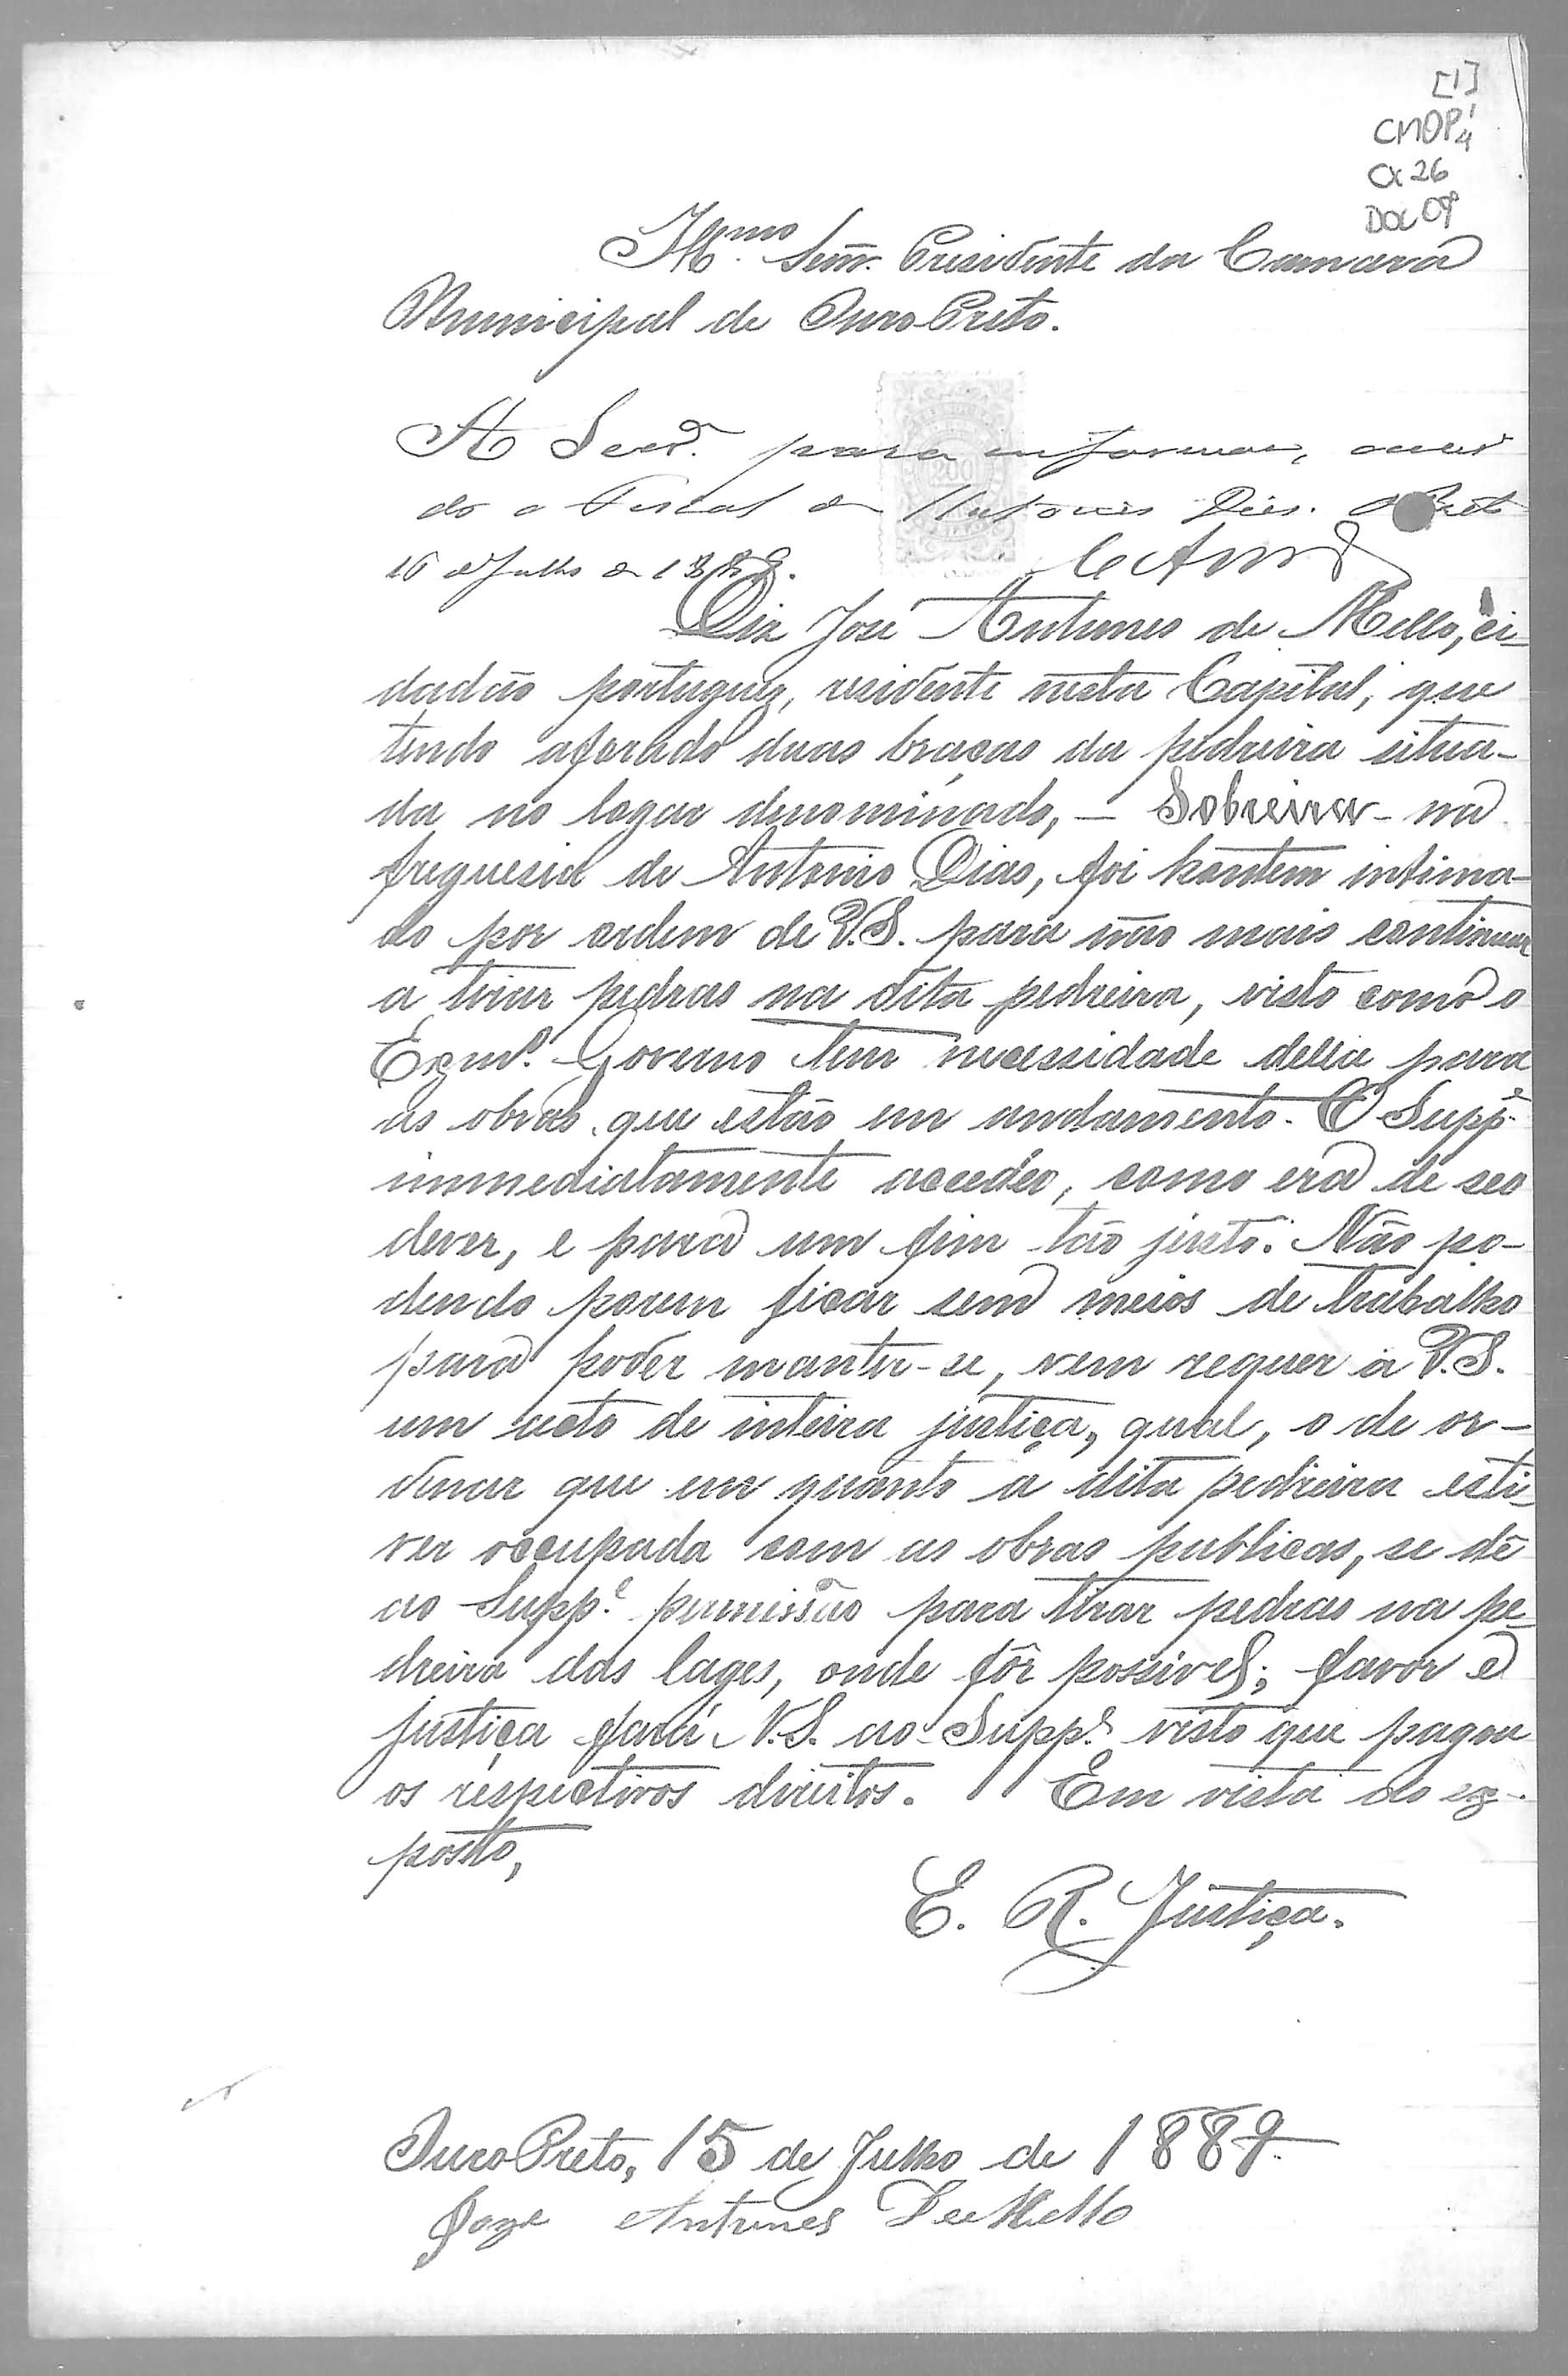 [1]
CMOP 1/4
Cx 26
DOC 09
Illmo. Senr. Presidente da Camara
Municipal de Ouro Preto.
200
A Secr. para informar, ouvin
do o Fiscal de Antonio Dias. O Preto
16 de Julho de 1889.
Diz José Antunes de Mello, ci-
dadão portuguez, residente nesta Capital, que
tendo aforado duas braças da pedreira situa-
da no logar denominado, - Sobreira - na
freguesia de Antonio Dias, foi hontem intima-
do por ordem de V.S. para não mais continuar
a tirar pedras na dita pedreira, visto como o
Exmo. Governo tem necessidade della para
as obras que estão em andamento. O Suppe.
immediatamente accedeo, como era de seo
dever, e para um fim tão justo. Não po-
dendo porem ficar sem meios de trabalho
para poder manter-se, vem requer a V.S.
um acto de inteira justiça, qual, o de or-
denar que em quanto a dita pedreira esti-
ver occupada com as obras publicas, se dê
ao Suppe. permissão para tirar pedras na pe-
dreira das lages, onde fôr possivel; favor e
justiça fará V.S. ao Suppe. visto que pagou
os respectivos direitos. Em vista do ex-
posto,
E. R. Justiça.
Ouro Preto, 15 de Julho de 1889.
Joze Antunes De Mello